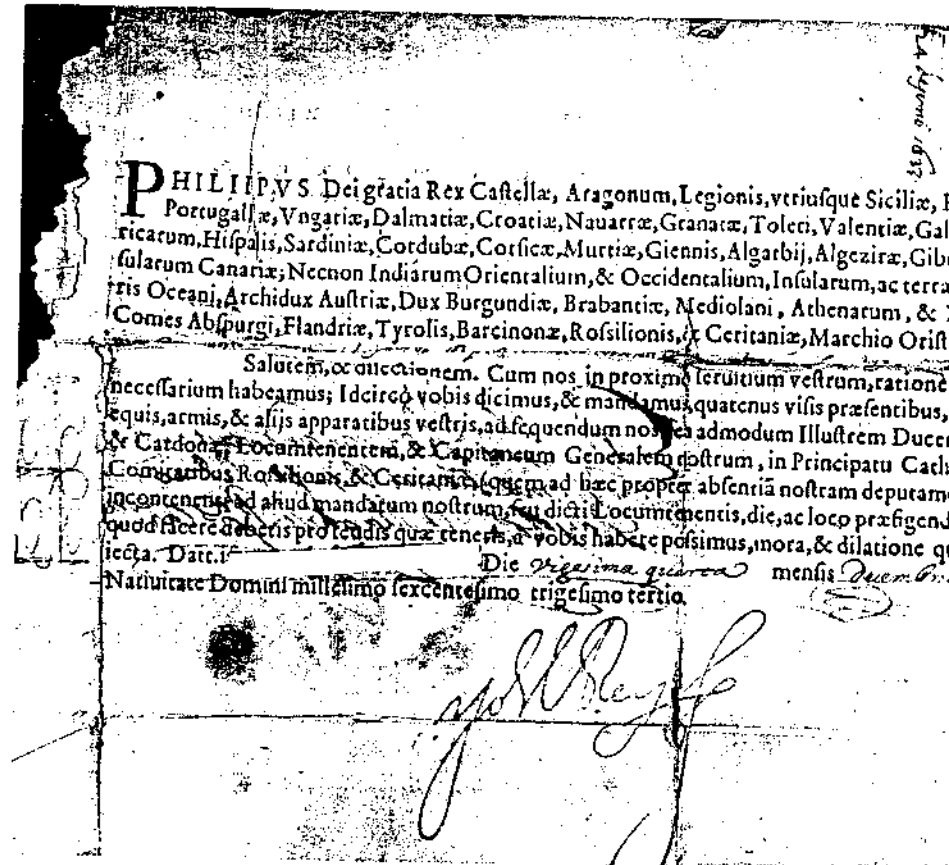 1637
PHILIPPVS Dei gratia Rex Castellæ, Aragonum, Legionis, vtriusque Siciliæ,
Portugallæ, Vngariæ, Dalmatiæ, Croatiæ, Nauarræ, Granatæ, Toleti, Valentiæ, Gal
ricarum, Hispalis, Sardiniæ, Cordubæ, Corsicæ, Murtiæ, Giennis, Algarbij, Algeziræ, Gib
sularum Canariæ; Necnon Indiarum Orientalium, & Occidentalium, Insularum, ac terra
ris Oceani, Archidux Austriæ, Dux Burgundiæ, Brabantiæ, Mediolani, Athenarum, &
Comes Abspurgi, Flandriæ, Tyrolis, Barcinonæ, Rossilionis, & Ceritaniæ, Marchio Orist
Salutem, & dilectionem. Cum nos in proximo seruitium vestrum, ratione
necessarium habeamus; Idcircò vobis dicimus, & mandamus, quatenus visis præsentibus,
equis, armis, & alijs apparatibus vestris, ad sequendum nos, admodum Illustrem Ducem
& Cardonæ, Locumtenentem, & Capitaneum Generalem nostrum, in Principatu Cath
Comitatibus Rossilionis, & Ceritaniæ (quem ad hæc propter absentiā nostram deputam
incontenenti ad aliud mandatum nostrum, seu dicti Locumtenentis, die, ac loco præfigend
quod facere debetis pro feudis quæ tenetis, à vobis habere possimus, mora, & dilatione
iecta. Datt. Die vigesima quarta mensis Decembr
Natiuitate Domini millesimo sexcentesimo trigesimo tertio.
yo el Rey